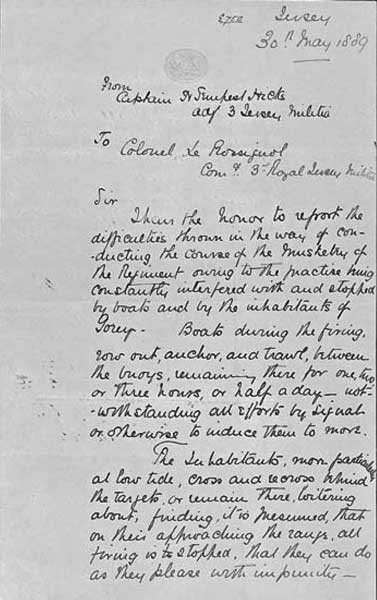 Jersey
30th May 1889
From
Captain H Tempest Hicks
adj 3 Jersey Militia
To
Colonel Le Rossignol
Comg 3rd Royal Jersey Militia
Sir
I have the honor to report the
difficulties thrown in the way of con-
-ducting the course of the Musketry of
the Regiment owing to the practise being
constantly interfered with and stopped
by boats and by the inhabitants of
Gorey - Boats during the firing,
row out, anchor, and trawl, between
the buoys, remaining there for one, two
or three hours, or half a day - not-
-withstanding all efforts by signal
or otherwise to induce them to move.
The Inhabitants, more particularly
at low tide, cross and recross behind
the targets, or remain there, loitering
about, finding, it is presumed, that
on their approaching the range, all
firing is to stopped, that they can do
as they please with impunity -